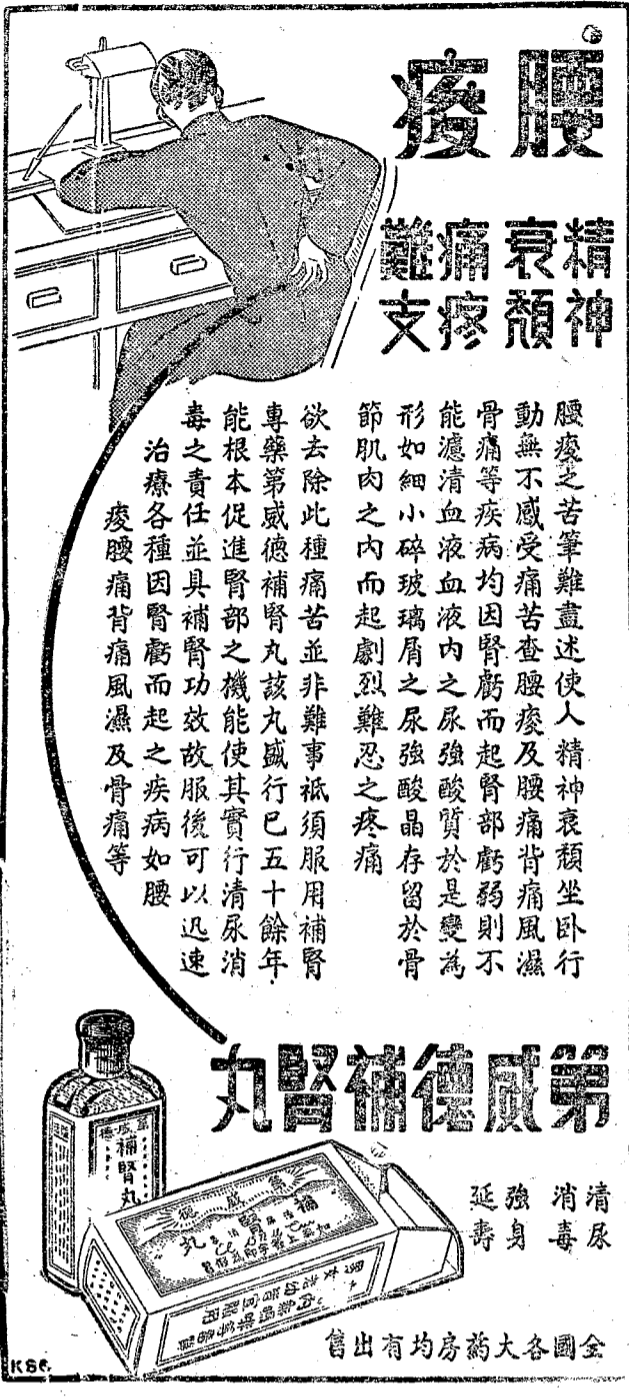 腰痠
精神
衰頹
痛疼
難支
腰痠之苦筆難盡述使人精神衰頹坐卧行
動無不感受痛苦查腰痠及腰痛背痛風濕
骨痛等疾病均因腎虧而起腎部虧弱則不
能濾清血液血液内之尿強酸質於是變為
形如細小碎玻璃屑之尿強酸晶存留於骨
節肌肉之内而起劇烈難忍之疼痛
欲去除此種痛苦並非難事祗須服用補腎
專藥第威德補腎丸該丸盛行已五十餘年
能根本促進腎部之機能使其實行清尿消
毒之責任並具補腎功效故服後可以迅速
治療各種因腎虧而起之疾病如腰
痠腰痛背痛風濕及骨痛等
第威德補腎丸
清尿
消毒
強身
延壽
全國各大葯房均有出售
第威德
補腎丸
K86.